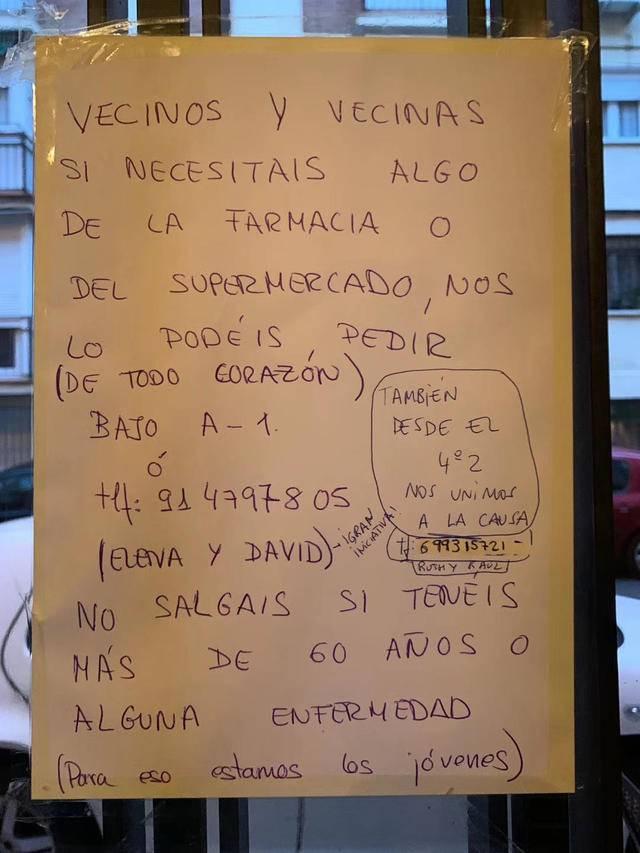 VECINOS Y VECINAS
SI NECESITAIS ALGO
DE LA FARMACIA O
DEL SUPERMERCADO, NOS
LO PODÉIS PEDIR
(DE TODO CORAZÓN)
BAJO A-1.
Ó
tlf: 91 4797805
(ELENA Y DAVID)
¡GRAN
INICIATIVA!
TAMBIÉN
DESDE EL
4º2
NOS UNIMOS
A LA CAUSA
tf: 699315721
RUTH Y RAUL
NO SALGAIS SI TENÉIS
MÁS DE 60 AÑOS O
ALGUNA ENFERMEDAD
(Para eso estamos los jóvenes)